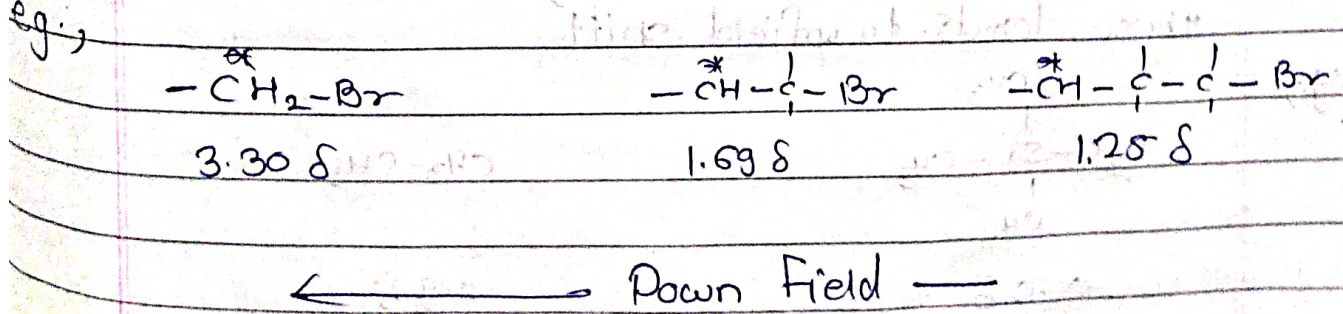 eg.,
- *CH2-Br - *CH-C-Br -*CH-C-C-Br
3.30 δ 1.69 δ 1.25 δ
← Down Field —